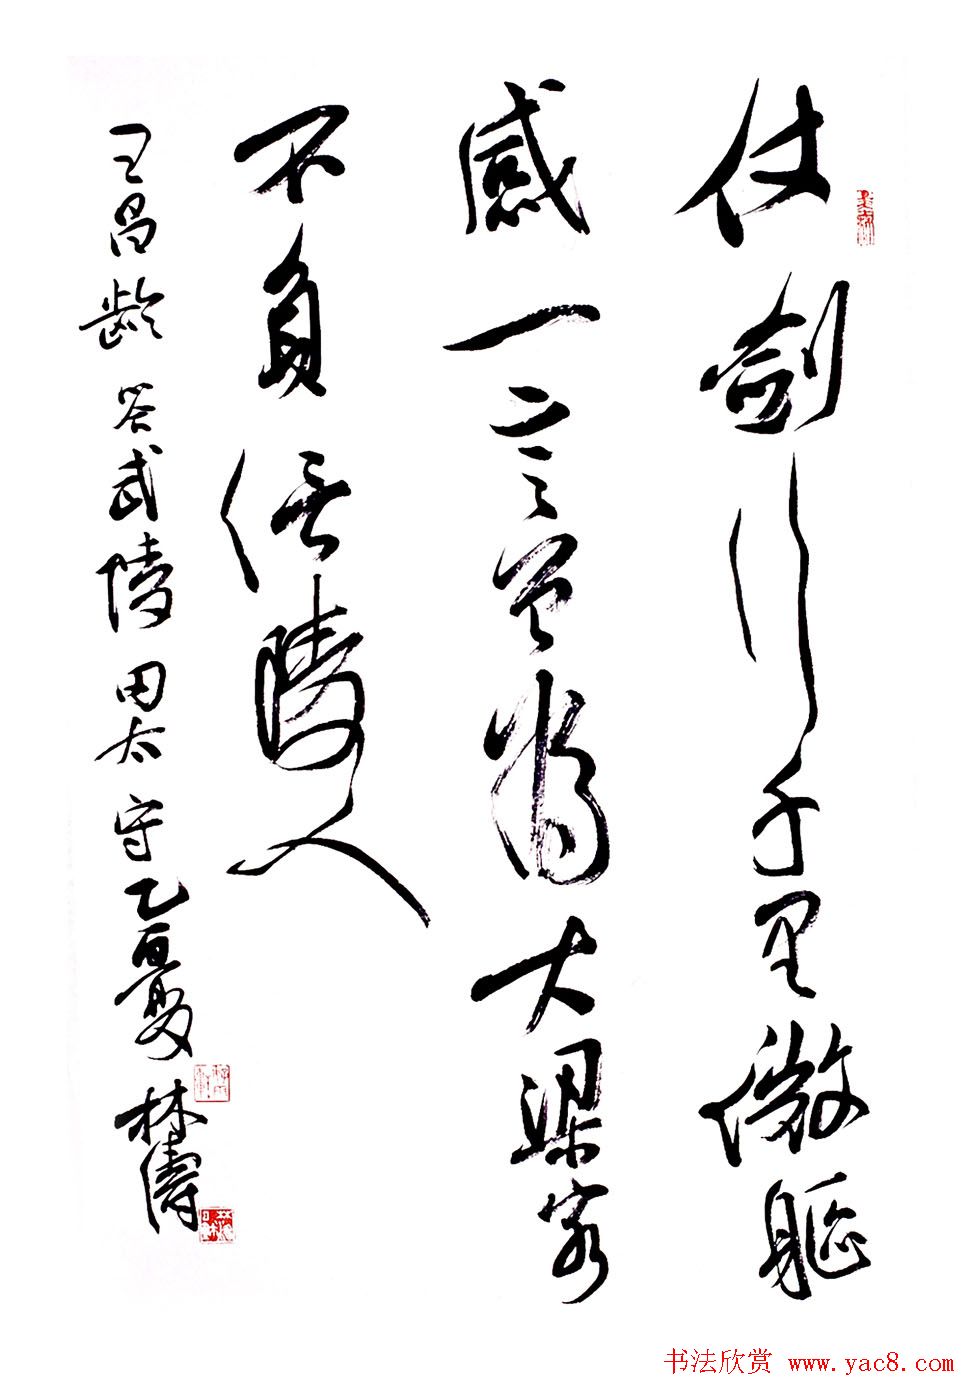 仗剑行千里微躯
感一言曾为大梁客
不负信陵人
王昌龄答武陵田太守乙酉夏林涛
书法欣赏 www.yac8.com